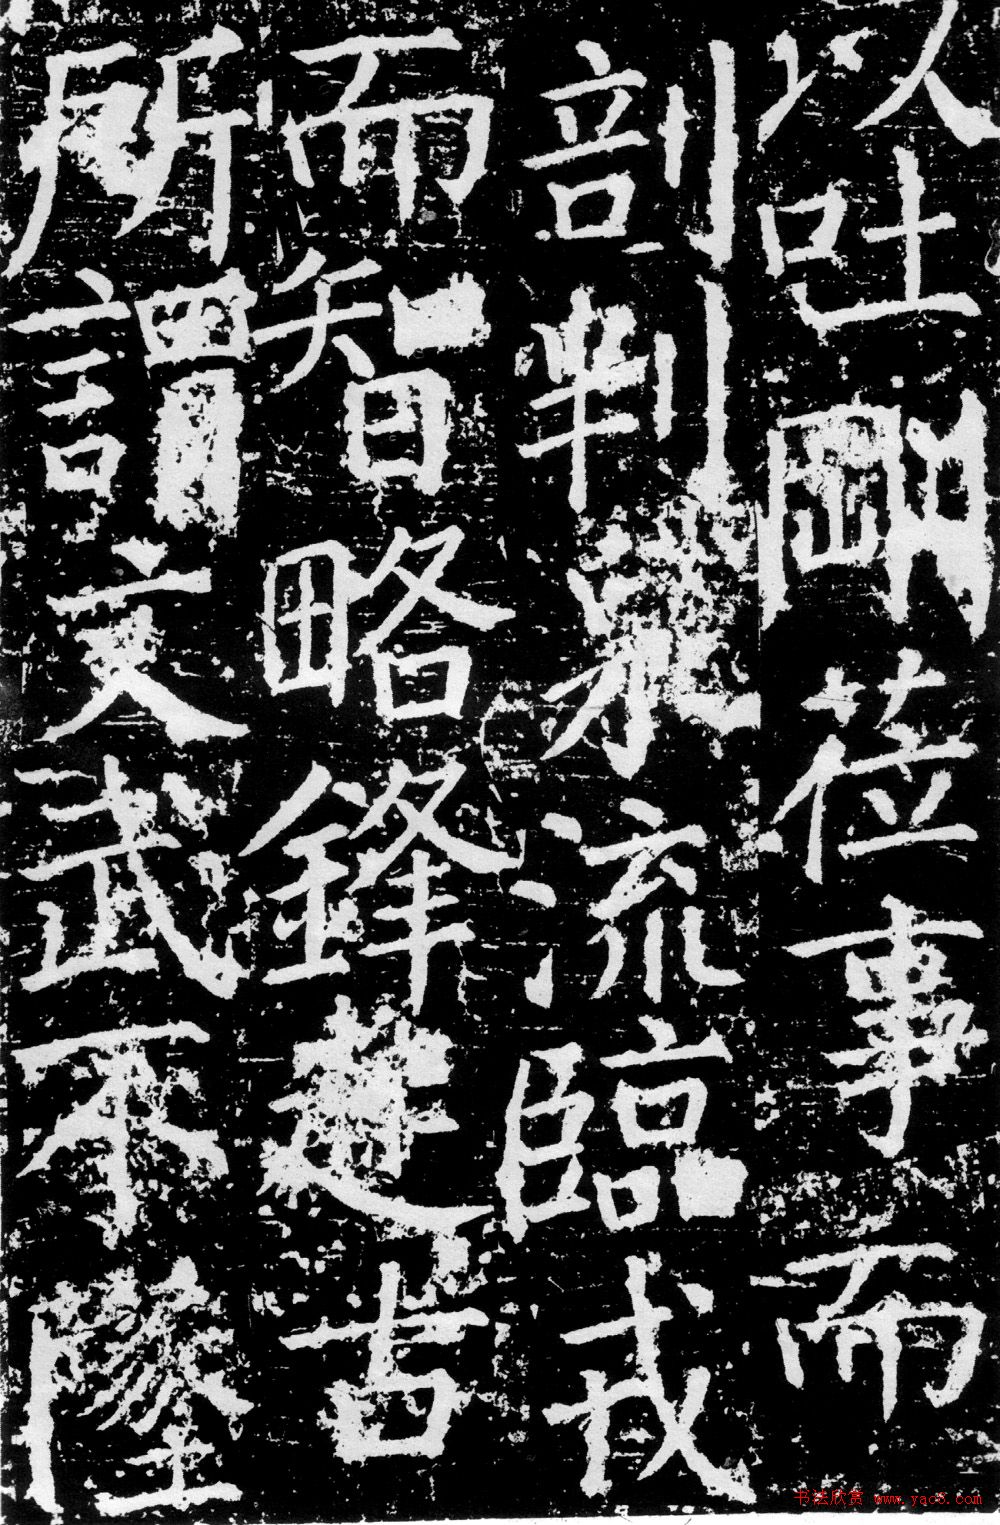 以吐剛莅事而
剖判泉流臨戎
而智略鋒起古
所謂文武不墜
书法欣赏 www.yac8.com